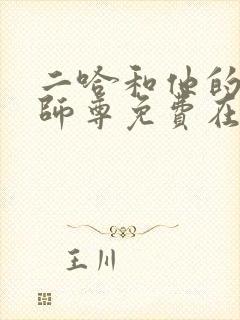 二哈和他的
師尊免費在
王川